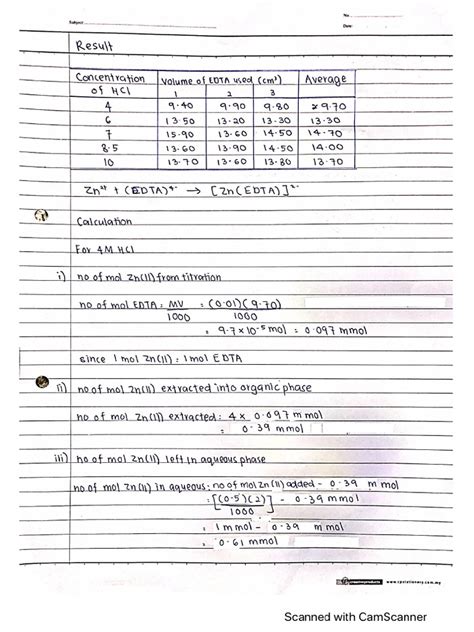 Subject
No.
Date:
Result
Concentration of HCl | Volume of EDTA used (cm³) 1 2 3 | Average
4 9.40 9.90 9.80 9.70
6 13.50 13.20 13.30 13.30
7 15.90 13.60 14.50 14.70
8.5 13.60 13.90 14.50 14.00
10 13.70 13.60 13.80 13.70
Zn²⁺ + (EDTA)⁴⁻ → [Zn(EDTA)]²⁻
Calculation
For 4M HCl
i) no of mol Zn(II) from titration
no of mol EDTA: MV/1000 = (0.01)(9.70)/1000
= 9.7 × 10⁻⁵ mol = 0.097 mmol
since 1 mol Zn(II) : 1 mol EDTA
ii) no of mol Zn(II) extracted into organic phase
no of mol Zn(II) extracted: 4 × 0.097 mmol
= 0.39 mmol
iii) no of mol Zn(II) left in aqueous phase
no of mol Zn(II) in aqueous: no of mol Zn(II) added - 0.39 mmol
= [(0.5)(2)/1000] - 0.39 mmol
= 1 mmol - 0.39 mmol
= 0.61 mmol
www.cpstationery.com.my
Scanned with CamScanner